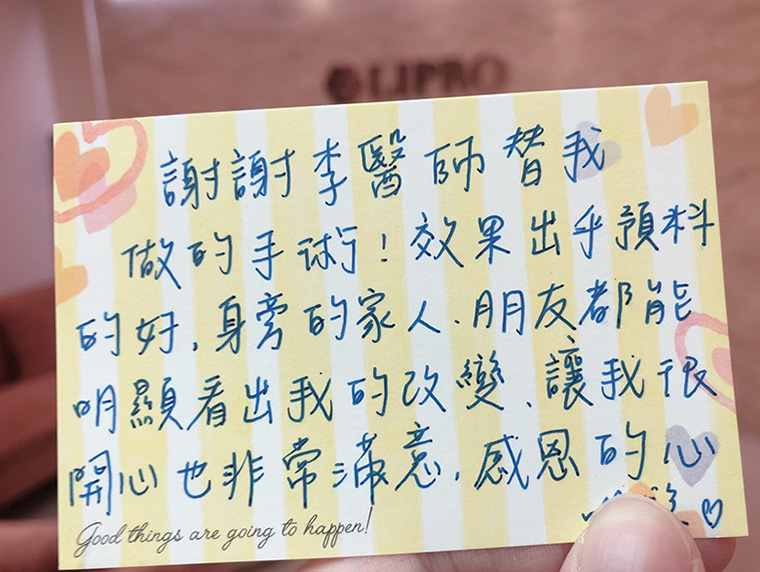 LIPRO
謝謝李醫師替我
做的手術！效果出乎預料
的好，身旁的家人、朋友都能
明顯看出我的改變，讓我很
開心也非常滿意，感恩的心
Good things are going to happen!